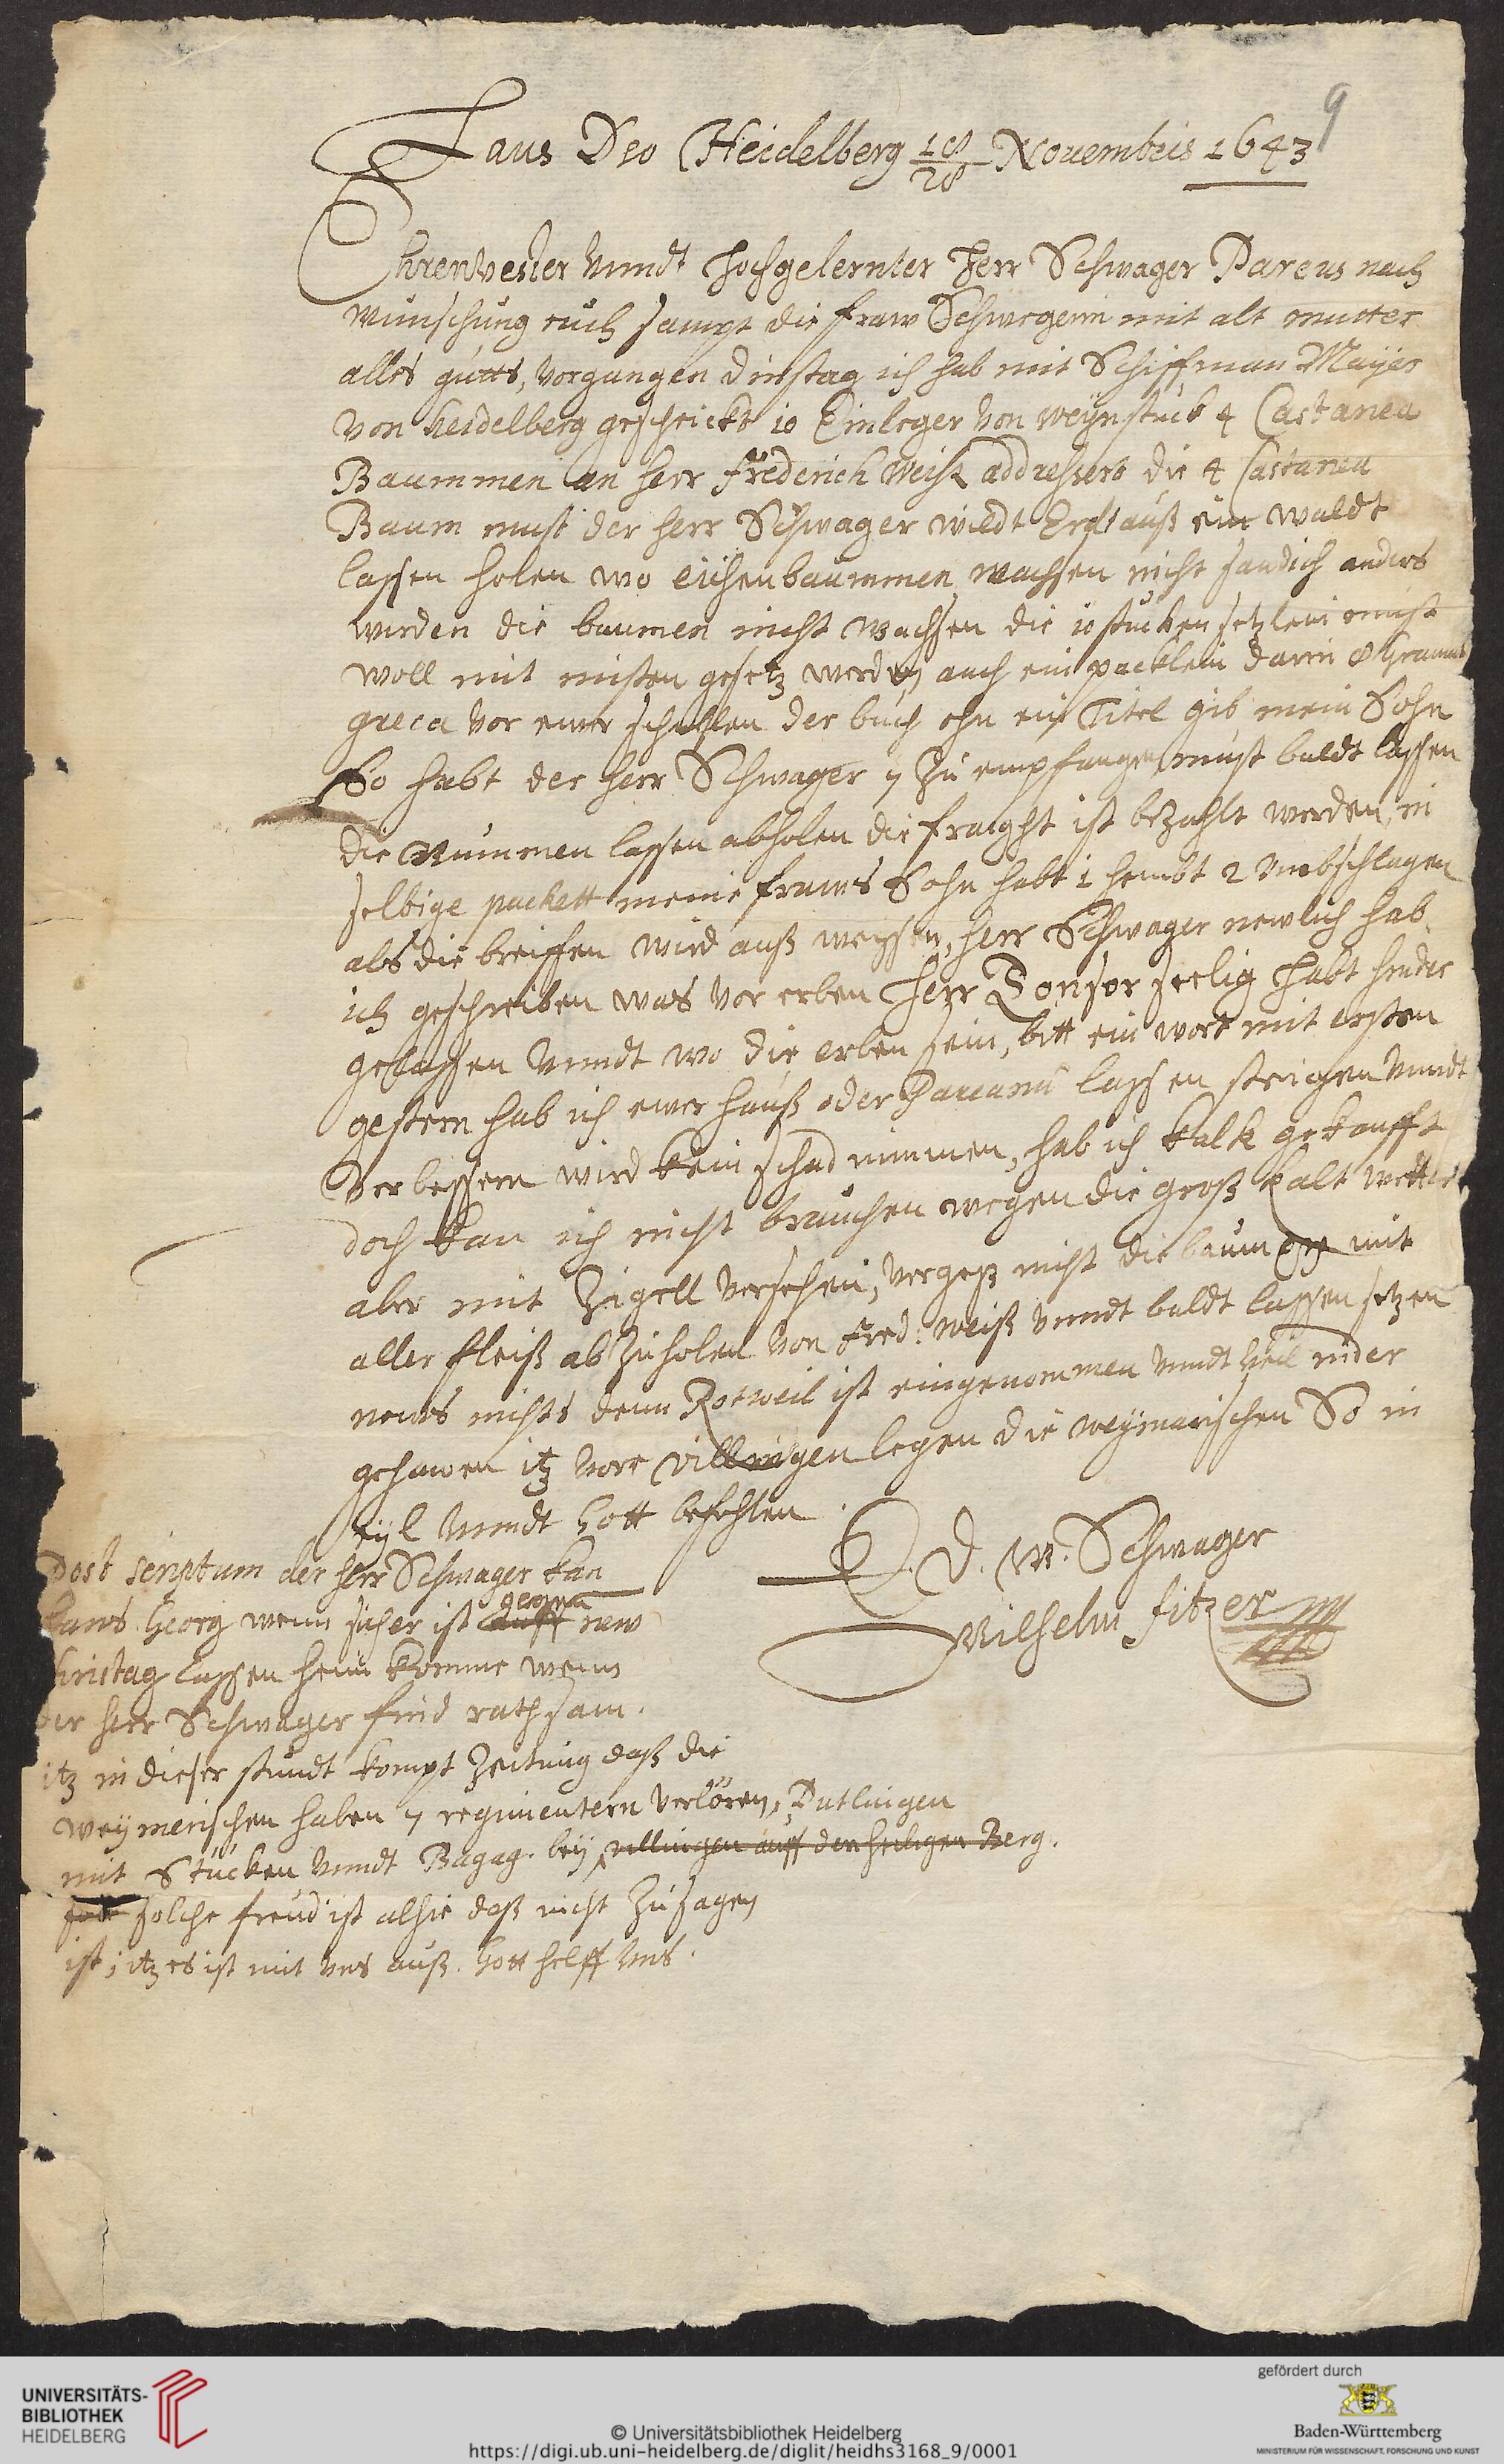 9
Laus Deo Heidelberg 18/28 Novembris 1643
Ehrenvester vnndt Hochgelernter Herr Schwager Pareus nach
wünschung euch sampt die fraw Schwegerin mit alt mutter
alles gutts, vorgangen dinstag ich hab mit Schiffman Mayer
von heidelberg geschrickt 10 Einleger von weynstück 4 Castanea
Baummen an herr Frederich Weiß addressert die 4 Castanea
Baum must der herr Schwager wildt Erdt auß ein waldt
lassen holen wo eichenbaummen wachsen nicht sandich anders
werden die baumen nicht wachsen die 10 stücken setzlein must
woll mit misten gesetz werden auch ein packlein darin 8 Gramm
greca vor ewer schuhlen der buch ohn ein Titel gib mein Sohn
So habt der herr Schwager 7 zu empfangen must baldt lassen
die Baummen lassen abholen die fraight ist bezahlt werden, in
selbige packett meine fraws Sohn habt 1 hembt 2 vmbschlagen
als die breiffen wird auß weysen, herr Schwager newlich hab
ich geschreiben was vor erben Herr Tonsor seelig habt hinder
gelassen vnndt wo die erben sein, bitt ein wort mit ersten
gestern hab ich ewer hauß oder Pareanū lassen steigen vnndt
verbessern wird kein schad nimmen, hab ich kalk gekaufft
doch kan ich nicht brauchen wegen die groß kalt wetter
aber mit Zigell versehen, vergeß nicht die baum mit
aller fleiß ab zu holen von Fred: Weiß vnndt baldt lassen setzen
news nichts denn Rotweil ist eingenommen vnndt viel nider
gehawen itz vorr villingen legen die weymarischen So in
eyl vnndt Gott befohlen
E. D. W. Schwager
Wilhelm Fitzer
Post scriptum der herr Schwager kan
hans Georg wenn sicher ist auff gegen new
Christag lassen heim komme wenn
der herr Schwager find rathsam.
itz in dieser stundt kompt Zeitung daß die
weymerischen haben 7 regimentern verloren, Dutlingen
mit Stücken vnndt Bagag. bey villingen auff den heiligen Berg.
solche freud ist alhie daß nicht zu sagen
ist, itz es ist mit vns auß. Gott helff vns.
UNIVERSITÄTS-
BIBLIOTHEK
HEIDELBERG
© Universitätsbibliothek Heidelberg
https://digi.ub.uni-heidelberg.de/diglit/heidhs3168_9/0001
gefördert durch
Baden-Württemberg
MINISTERIUM FÜR WISSENSCHAFT, FORSCHUNG UND KUNST